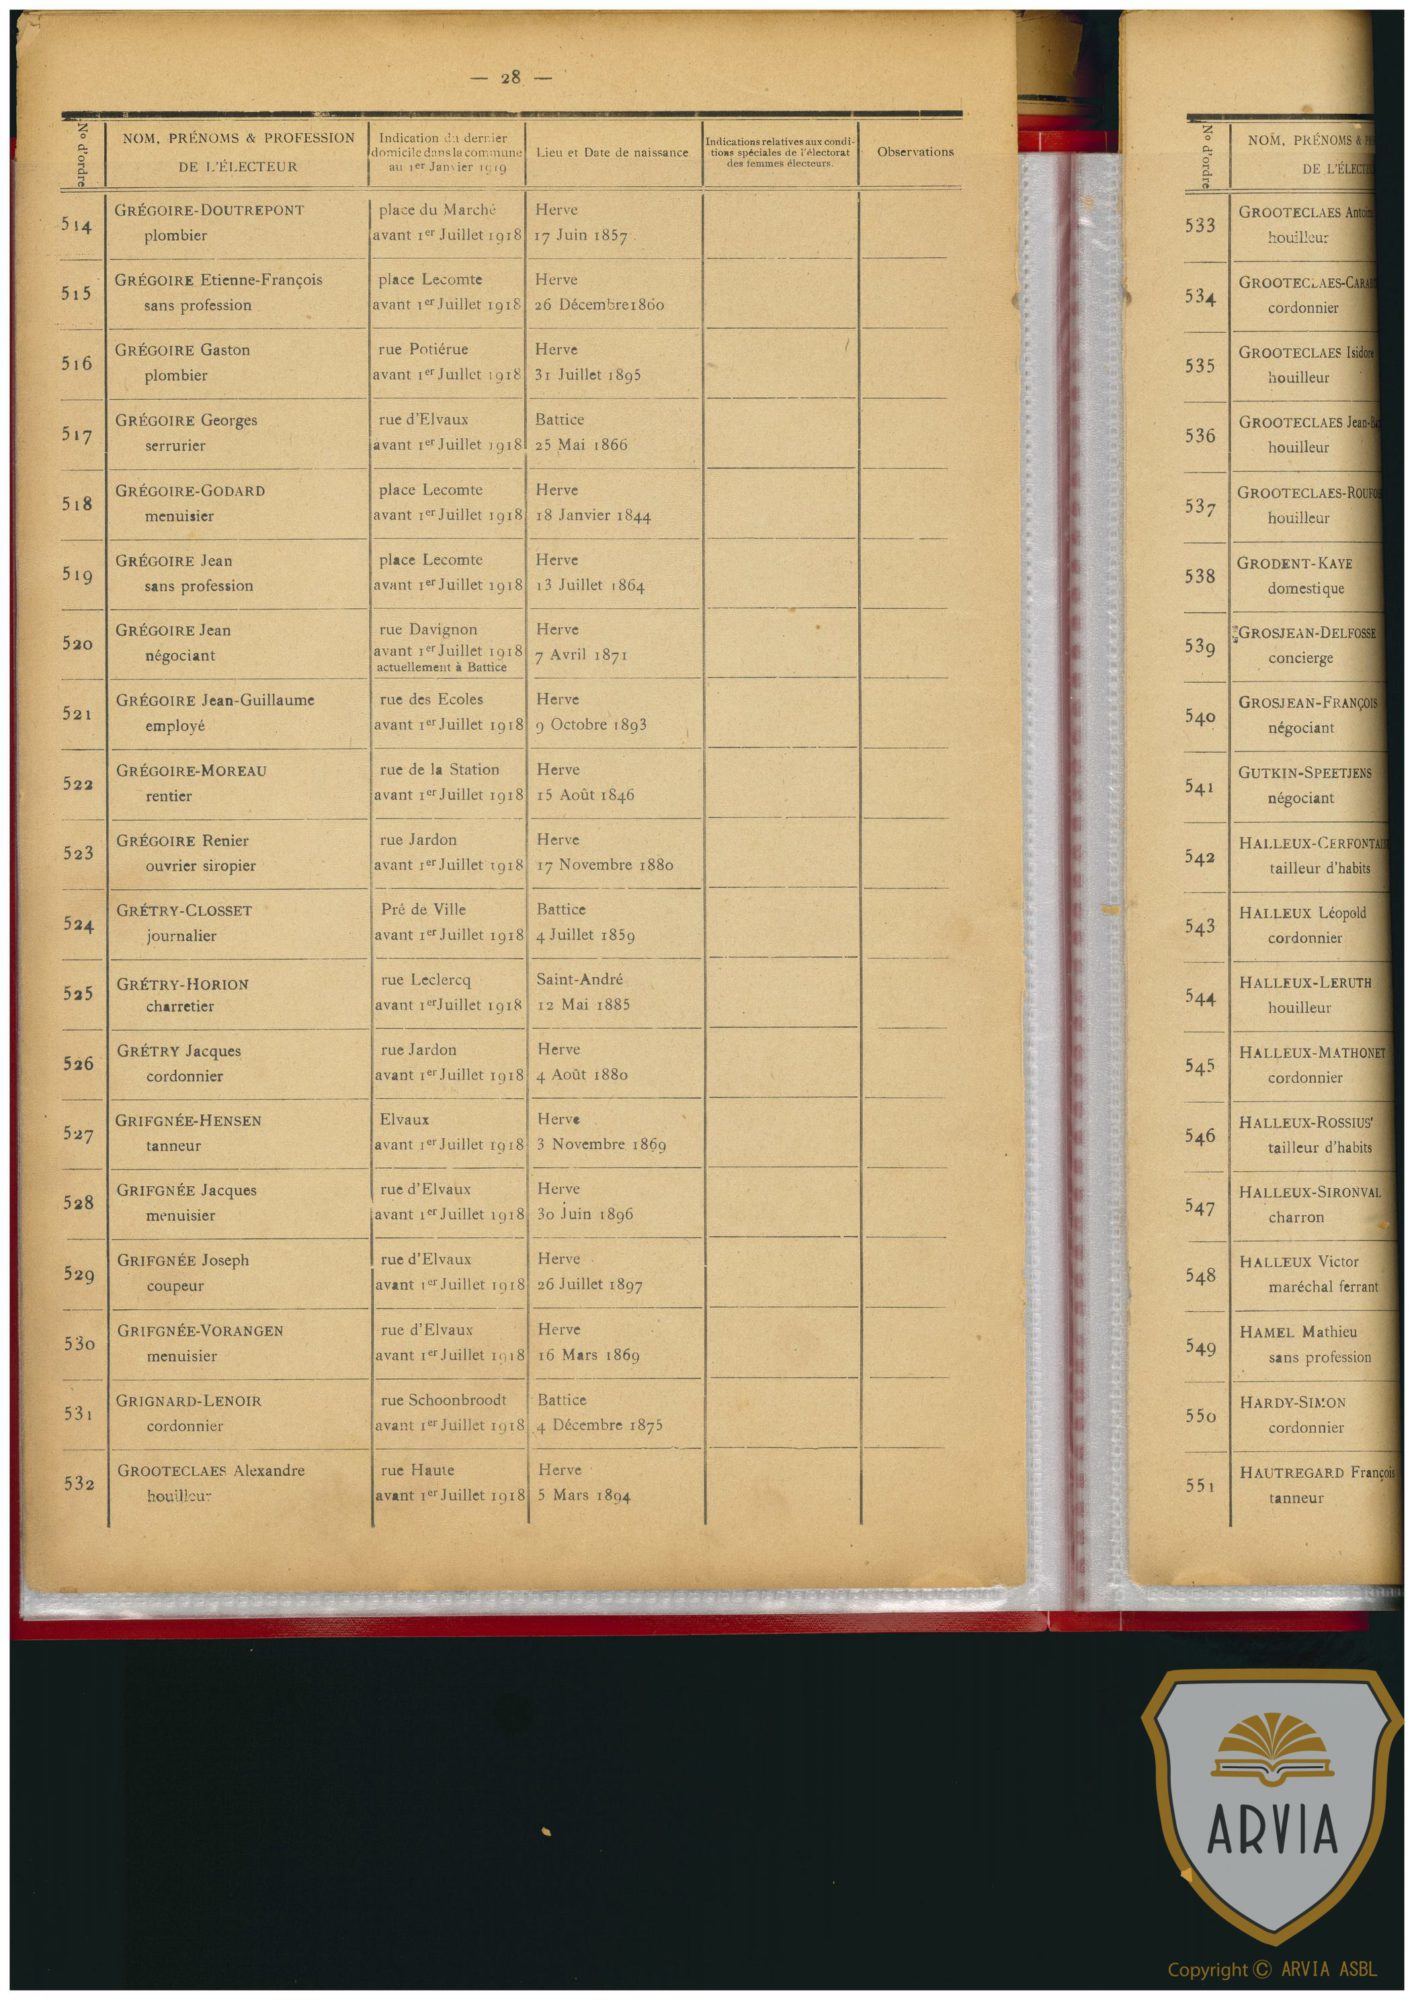 — 28 —
No d'ordre
NOM, PRÉNOMS & PROFESSION
DE L'ÉLECTEUR
Indication du dernier
domicile dans la commune
au 1er Janvier 1919
Lieu et Date de naissance
Indications relatives aux condi-
tions spéciales de l'électorat
des femmes électeurs.
Observations
514 GRÉGOIRE-DOUTREPONT place du Marché Herve
plombier avant 1er Juillet 1918 17 Juin 1857
515 GRÉGOIRE Etienne-François place Lecomte Herve
sans profession avant 1er Juillet 1918 26 Décembre 1860
516 GRÉGOIRE Gaston rue Potiérue Herve
plombier avant 1er Juillet 1918 31 Juillet 1895
517 GRÉGOIRE Georges rue d'Elvaux Battice
serrurier avant 1er Juillet 1918 25 Mai 1866
518 GRÉGOIRE-GODARD place Lecomte Herve
menuisier avant 1er Juillet 1918 18 Janvier 1844
519 GRÉGOIRE Jean place Lecomte Herve
sans profession avant 1er Juillet 1918 13 Juillet 1864
520 GRÉGOIRE Jean rue Davignon Herve
négociant avant 1er Juillet 1918 7 Avril 1871
actuellement à Battice
521 GRÉGOIRE Jean-Guillaume rue des Ecoles Herve
employé avant 1er Juillet 1918 9 Octobre 1893
522 GRÉGOIRE-MOREAU rue de la Station Herve
rentier avant 1er Juillet 1918 15 Août 1846
523 GRÉGOIRE Renier rue Jardon Herve
ouvrier siropier avant 1er Juillet 1918 17 Novembre 1880
524 GRÉTRY-CLOSSET Pré de Ville Battice
journalier avant 1er Juillet 1918 4 Juillet 1859
525 GRÉTRY-HORION rue Leclercq Saint-André
charretier avant 1er Juillet 1918 12 Mai 1885
526 GRÉTRY Jacques rue Jardon Herve
cordonnier avant 1er Juillet 1918 4 Août 1880
527 GRIFGNÉE-HENSEN Elvaux Herve
tanneur avant 1er Juillet 1918 3 Novembre 1869
528 GRIFGNÉE Jacques rue d'Elvaux Herve
menuisier avant 1er Juillet 1918 30 Juin 1896
529 GRIFGNÉE Joseph rue d'Elvaux Herve
coupeur avant 1er Juillet 1918 26 Juillet 1897
530 GRIFGNÉE-VORANGEN rue d'Elvaux Herve
menuisier avant 1er Juillet 1918 16 Mars 1869
531 GRIGNARD-LENOIR rue Schoonbroodt Battice
cordonnier avant 1er Juillet 1918 4 Décembre 1875
532 GROOTECLAES Alexandre rue Haute Herve
houilleur avant 1er Juillet 1918 5 Mars 1894
No d'ordre
NOM, PRÉNOMS &
DE
533 GROOTECLAES
houilleur
534
cordonnier
535 GROOTECLAES Isidore
houilleur
536 GROOTECLAES
houilleur
537
houilleur
538 GRODENT-KAYE
domestique
539 GROSJEAN-DELFOSSE
concierge
540 GROSJEAN-FRANÇOIS
négociant
541 GUTKIN-SPEETJENS
négociant
542
tailleur d'habits
543 HALLEUX Léopold
cordonnier
544 HALLEUX-LERUTH
houilleur
545 HALLEUX-MATHONET
cordonnier
546 HALLEUX-ROSSIUS
tailleur d'habits
547 HALLEUX-SIRONVAL
charron
548 HALLEUX Victor
maréchal ferrant
549 HAMEL Mathieu
sans profession
550 HARDY-SIMON
cordonnier
551 HAUTREGARD François
tanneur
ARVIA
Copyright © ARVIA ASBL